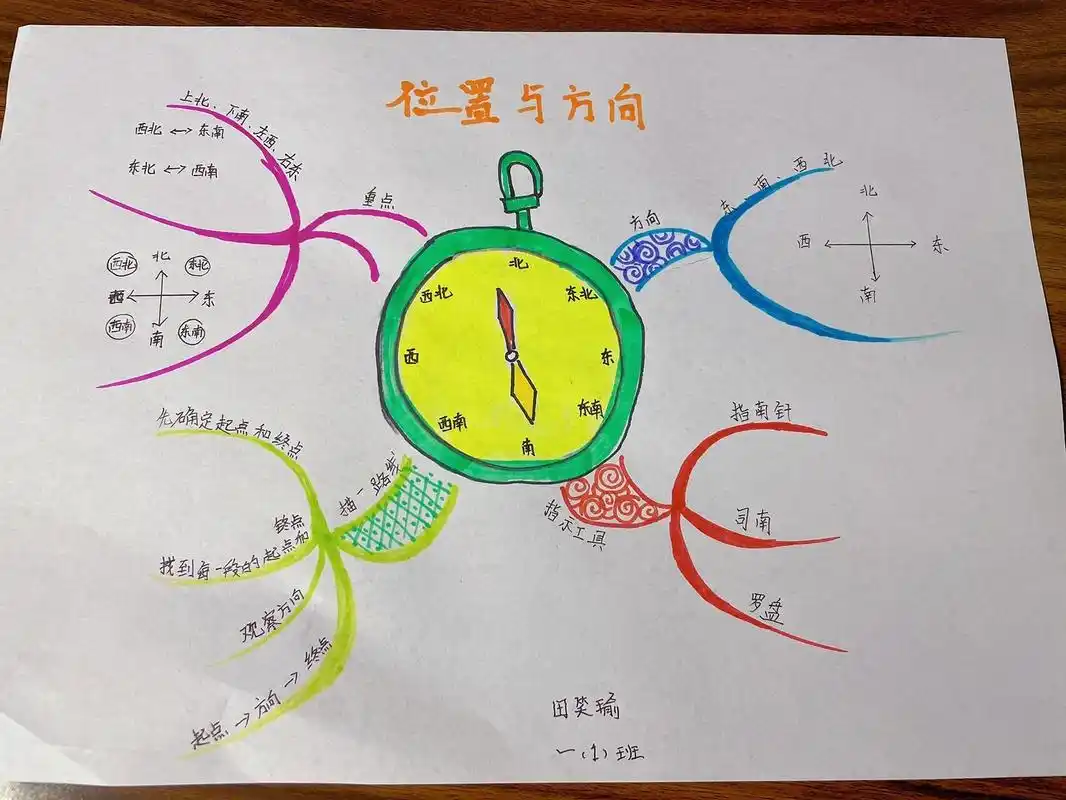 位置与方向
重点
上北、下南、左西、右东
西北 ↔ 东南
东北 ↔ 西南
西北 北 东北
西 东
西南 南 东南
方向
东、南、西、北
北
西 东
南
北
西北 东北
西 东
西南 东南
南
描一路线
先确定起点和终点
找到每一段的起点和
终点
观察方向
起点 → 方向 → 终点
指示工具
指南针
司南
罗盘
田笑瑜
一(1)班